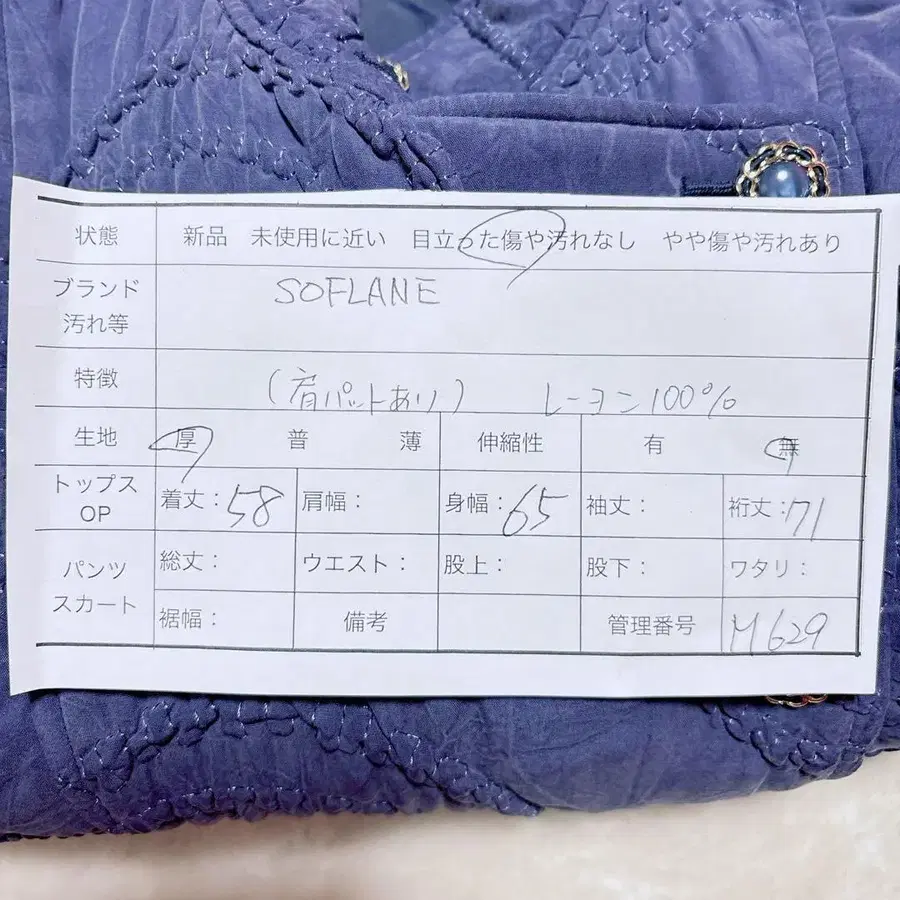 状態 新品 未使用に近い 目立った傷や汚れなし やや傷や汚れあり
ブランド SOFLANE
汚れ等
特徴 (肩パットあり) レーヨン100%
生地 厚 普 薄 伸縮性 有 無
トップス OP 着丈:58 肩幅: 身幅:65 袖丈: 裄丈:71
パンツ スカート 総丈: ウエスト: 股上: 股下: ワタリ:
裾幅: 備考 管理番号 M629